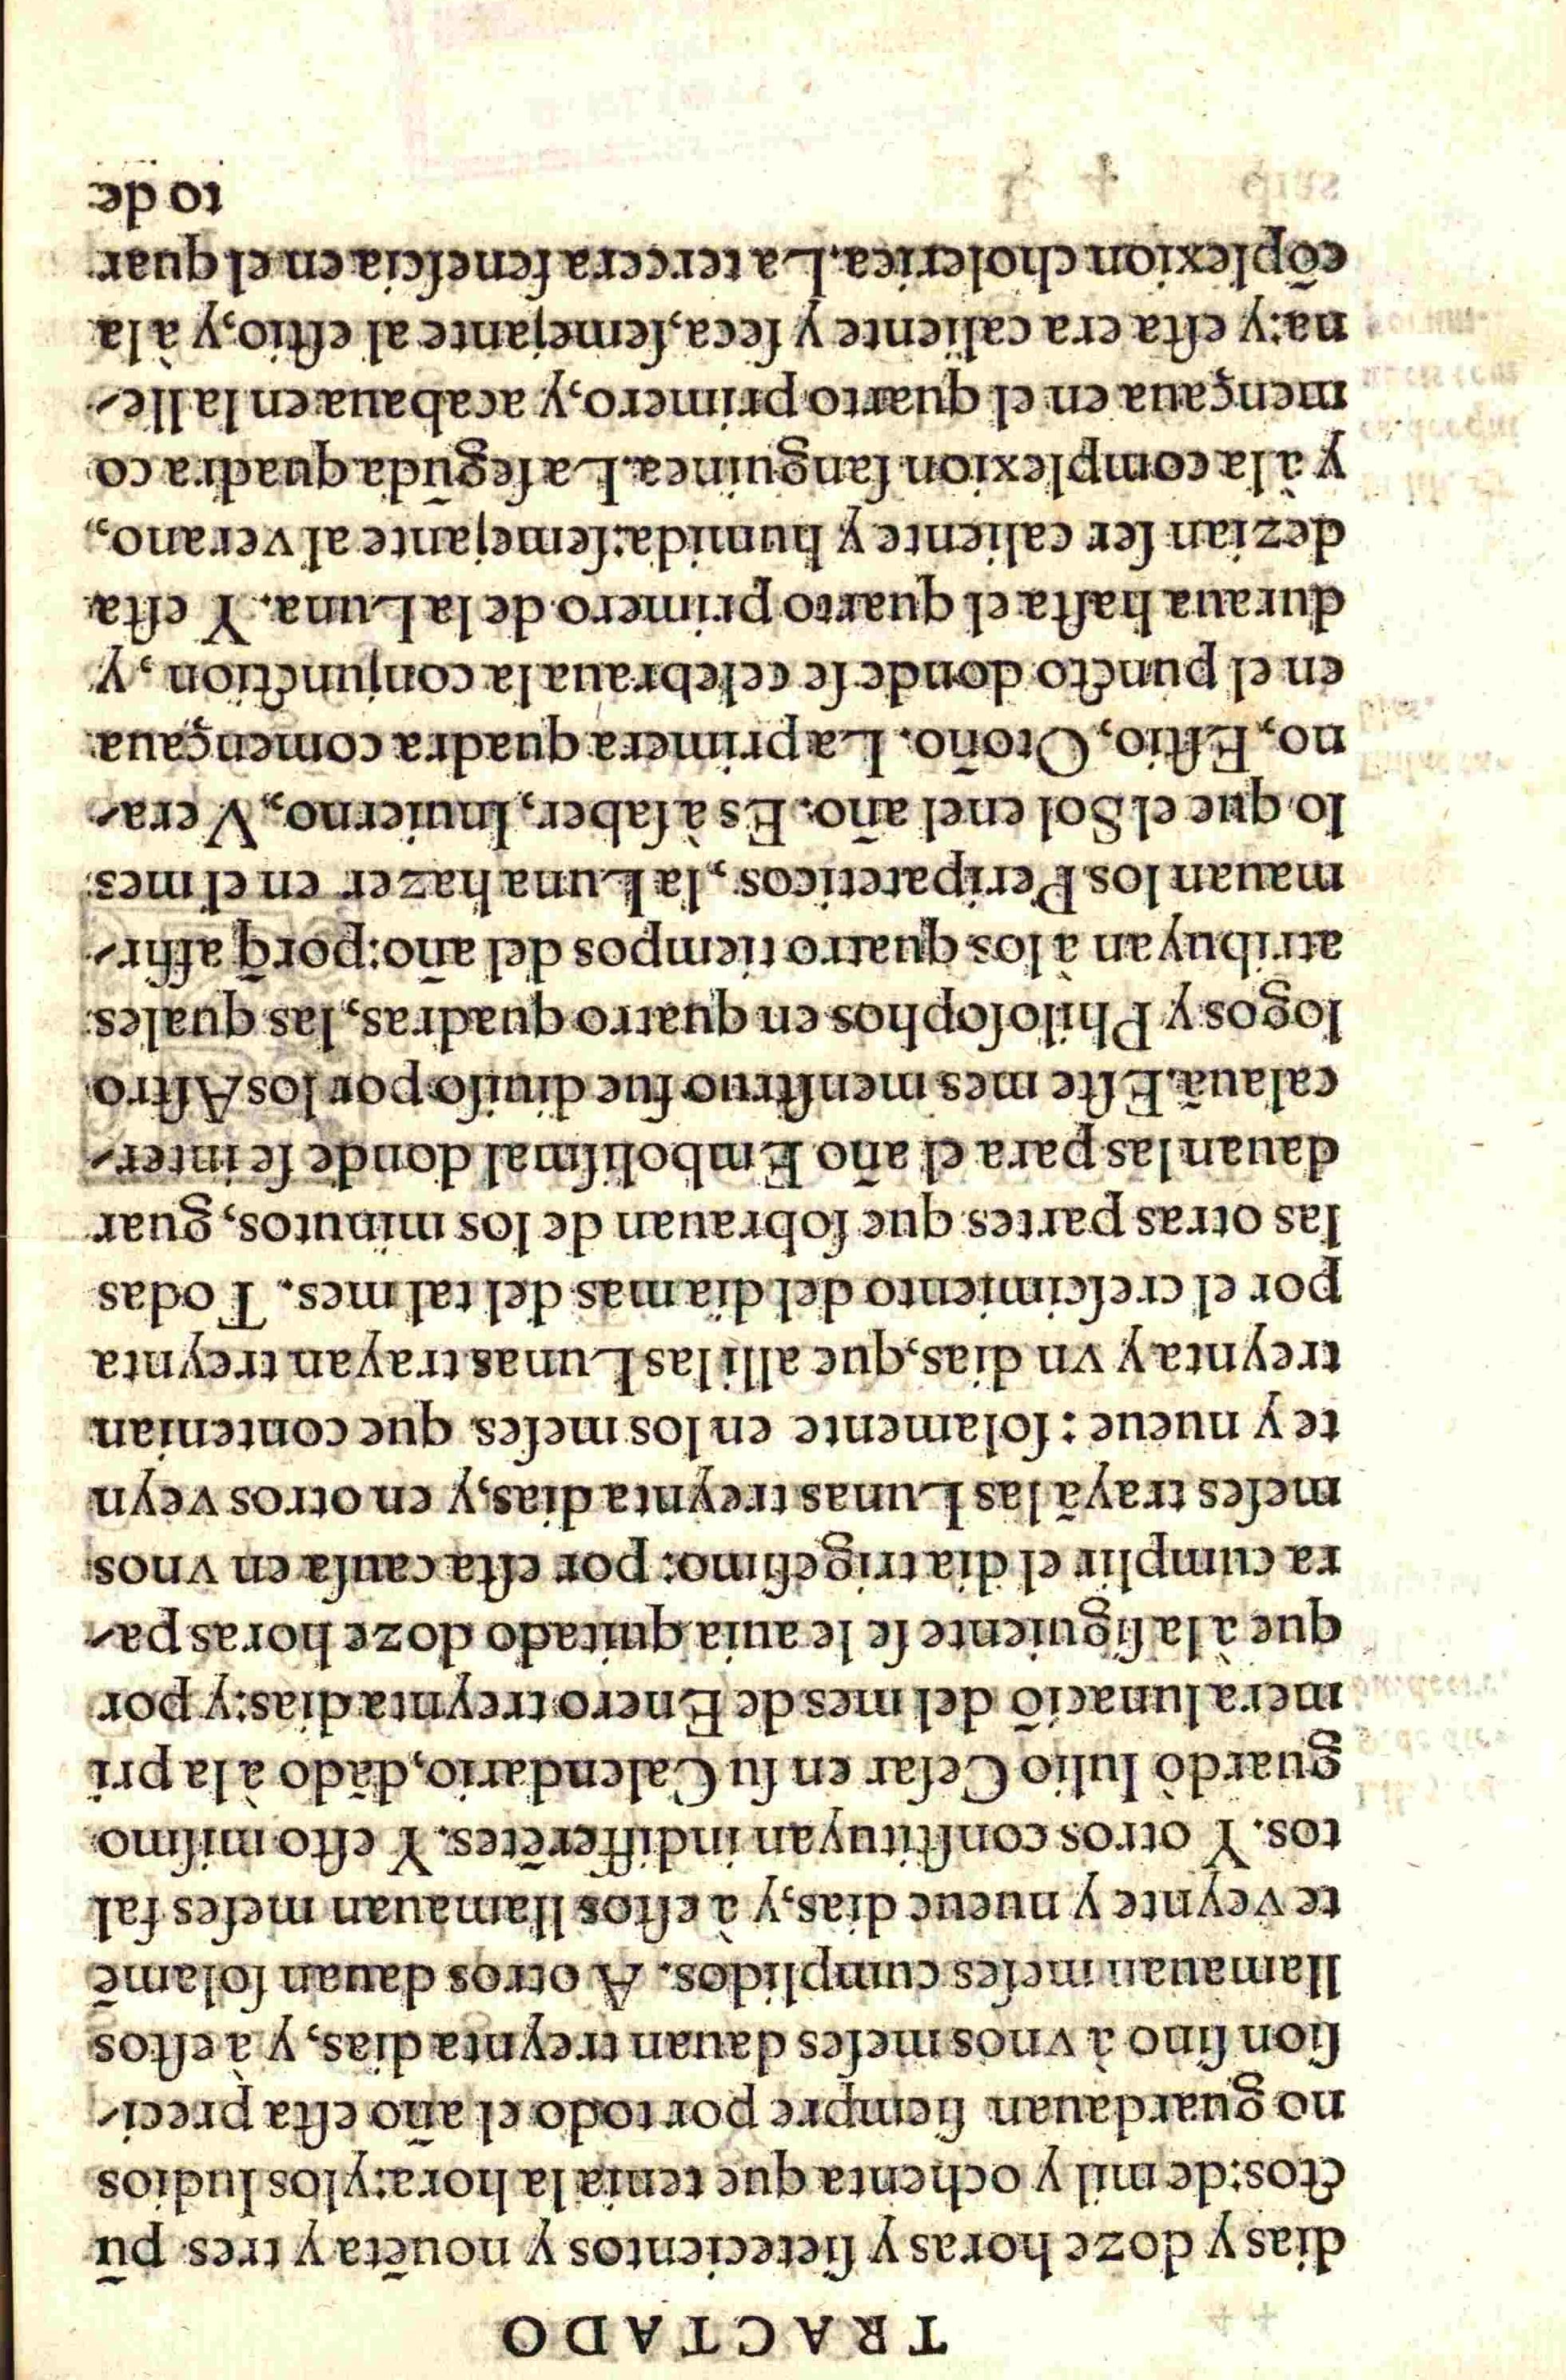 TRACTADO
dias y doze horas y ſietecientos y nouẽta y tres pũ
ctos: de mil y ochenta que tenia la hora: y los Iudios
no guardauan ſiempre por todo el año eſta preci-
ſion ſino à vnos meſes dauan treynta dias, y a eſtos
llamauan meſes cumplidos. A otros dauan ſolamẽ
te veynte y nueue dias, y à eſtos llamauan meſes fal
tos. Y otros conſtituyan indifferẽtes. Y eſto miſmo
guardò Iulio Ceſar en ſu Calendario, dãdo à la pri
mera lunaciõ del mes de Enero treynta dias: y por
que à la ſiguiente ſe le auia quitado doze horas pa-
ra cumplir el dia trigeſimo: por eſta cauſa en vnos
meſes trayã las Lunas treynta dias, y en otros veyn
te y nueue: ſolamente en los meſes que contenian
treynta y vn dias, que alli las Lunas trayan treynta
por el creſcimiento del dia mas del tal mes. Todas
las otras partes que ſobrauan de los minutos, guar
dauan las para el año Emboliſmal donde ſe inter-
calauã. Eſte mes menſtruo fue diuiſo por los Aſtro
logos y Philoſophos en quatro quadras, las quales
atribuyan à los quatro tiempos del año: porq̃ affir-
mauan los Peripateticos, la Luna hazer en el mes
lo que el Sol en el año: Es à ſaber, Inuierno, Vera-
no, Eſtio, Otoño. La primera quadra començaua
en el puncto donde ſe celebraua la conjunction, y
duraua haſta el quarto primero de la Luna. Y eſta
dezian ſer caliente y humida: ſemejante al verano,
y à la complexion ſanguinea. La ſegũda quadra co
mençaua en el quarto primero, y acabaua en la lle-
na: y eſta era caliente y ſeca, ſemejante al eſtio, y à la
cõplexion cholerica. La tercera feneſcia en el quar
to de